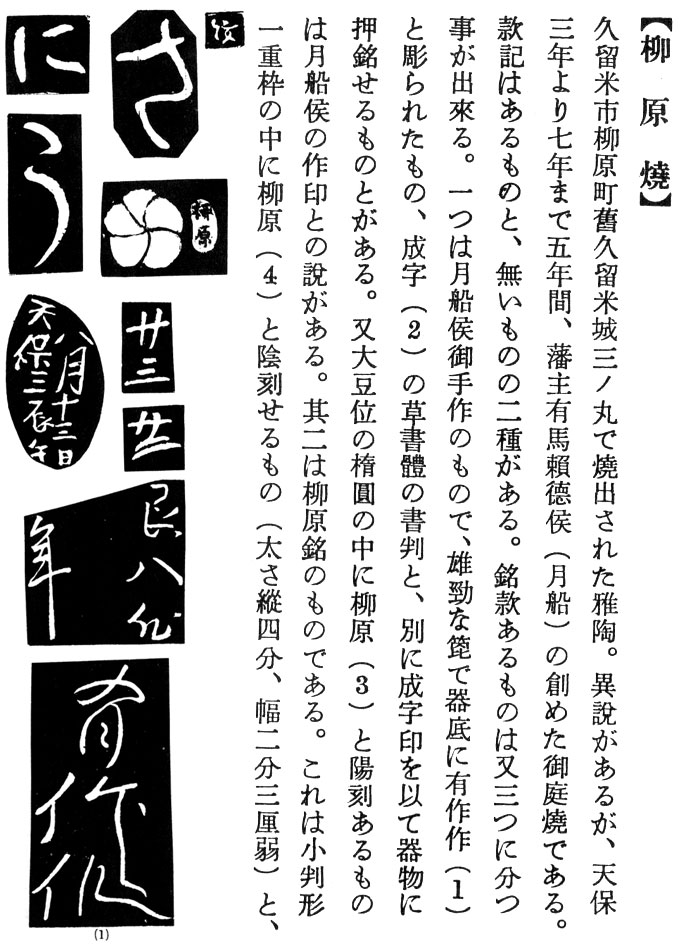 【柳原燒】
久留米市柳原町舊久留米城三ノ丸で燒出された雅陶。異說があるが、天保
三年より七年まで五年間、藩主有馬賴德侯(月船)の創めた御庭燒である。
款記はあるものと、無いものの二種がある。銘款あるものは又三つに分つ
事が出來る。一つは月船侯御手作のもので、雄勁な箆で器底に有作作(1)
と彫られたもの、成字(2)の草書體の書判と、別に成字印を以て器物に
押銘せるものとがある。又大豆位の楕圓の中に柳原(3)と陽刻あるもの
は月船侯の作印との說がある。其二は柳原銘のものである。これは小判形
一重枠の中に柳原(4)と陰刻せるもの(太さ縱四分、幅二分三厘弱)と、
さ
柳原
廿三
に
う
八月十三日
天保三辰年
年
有作作
(1)